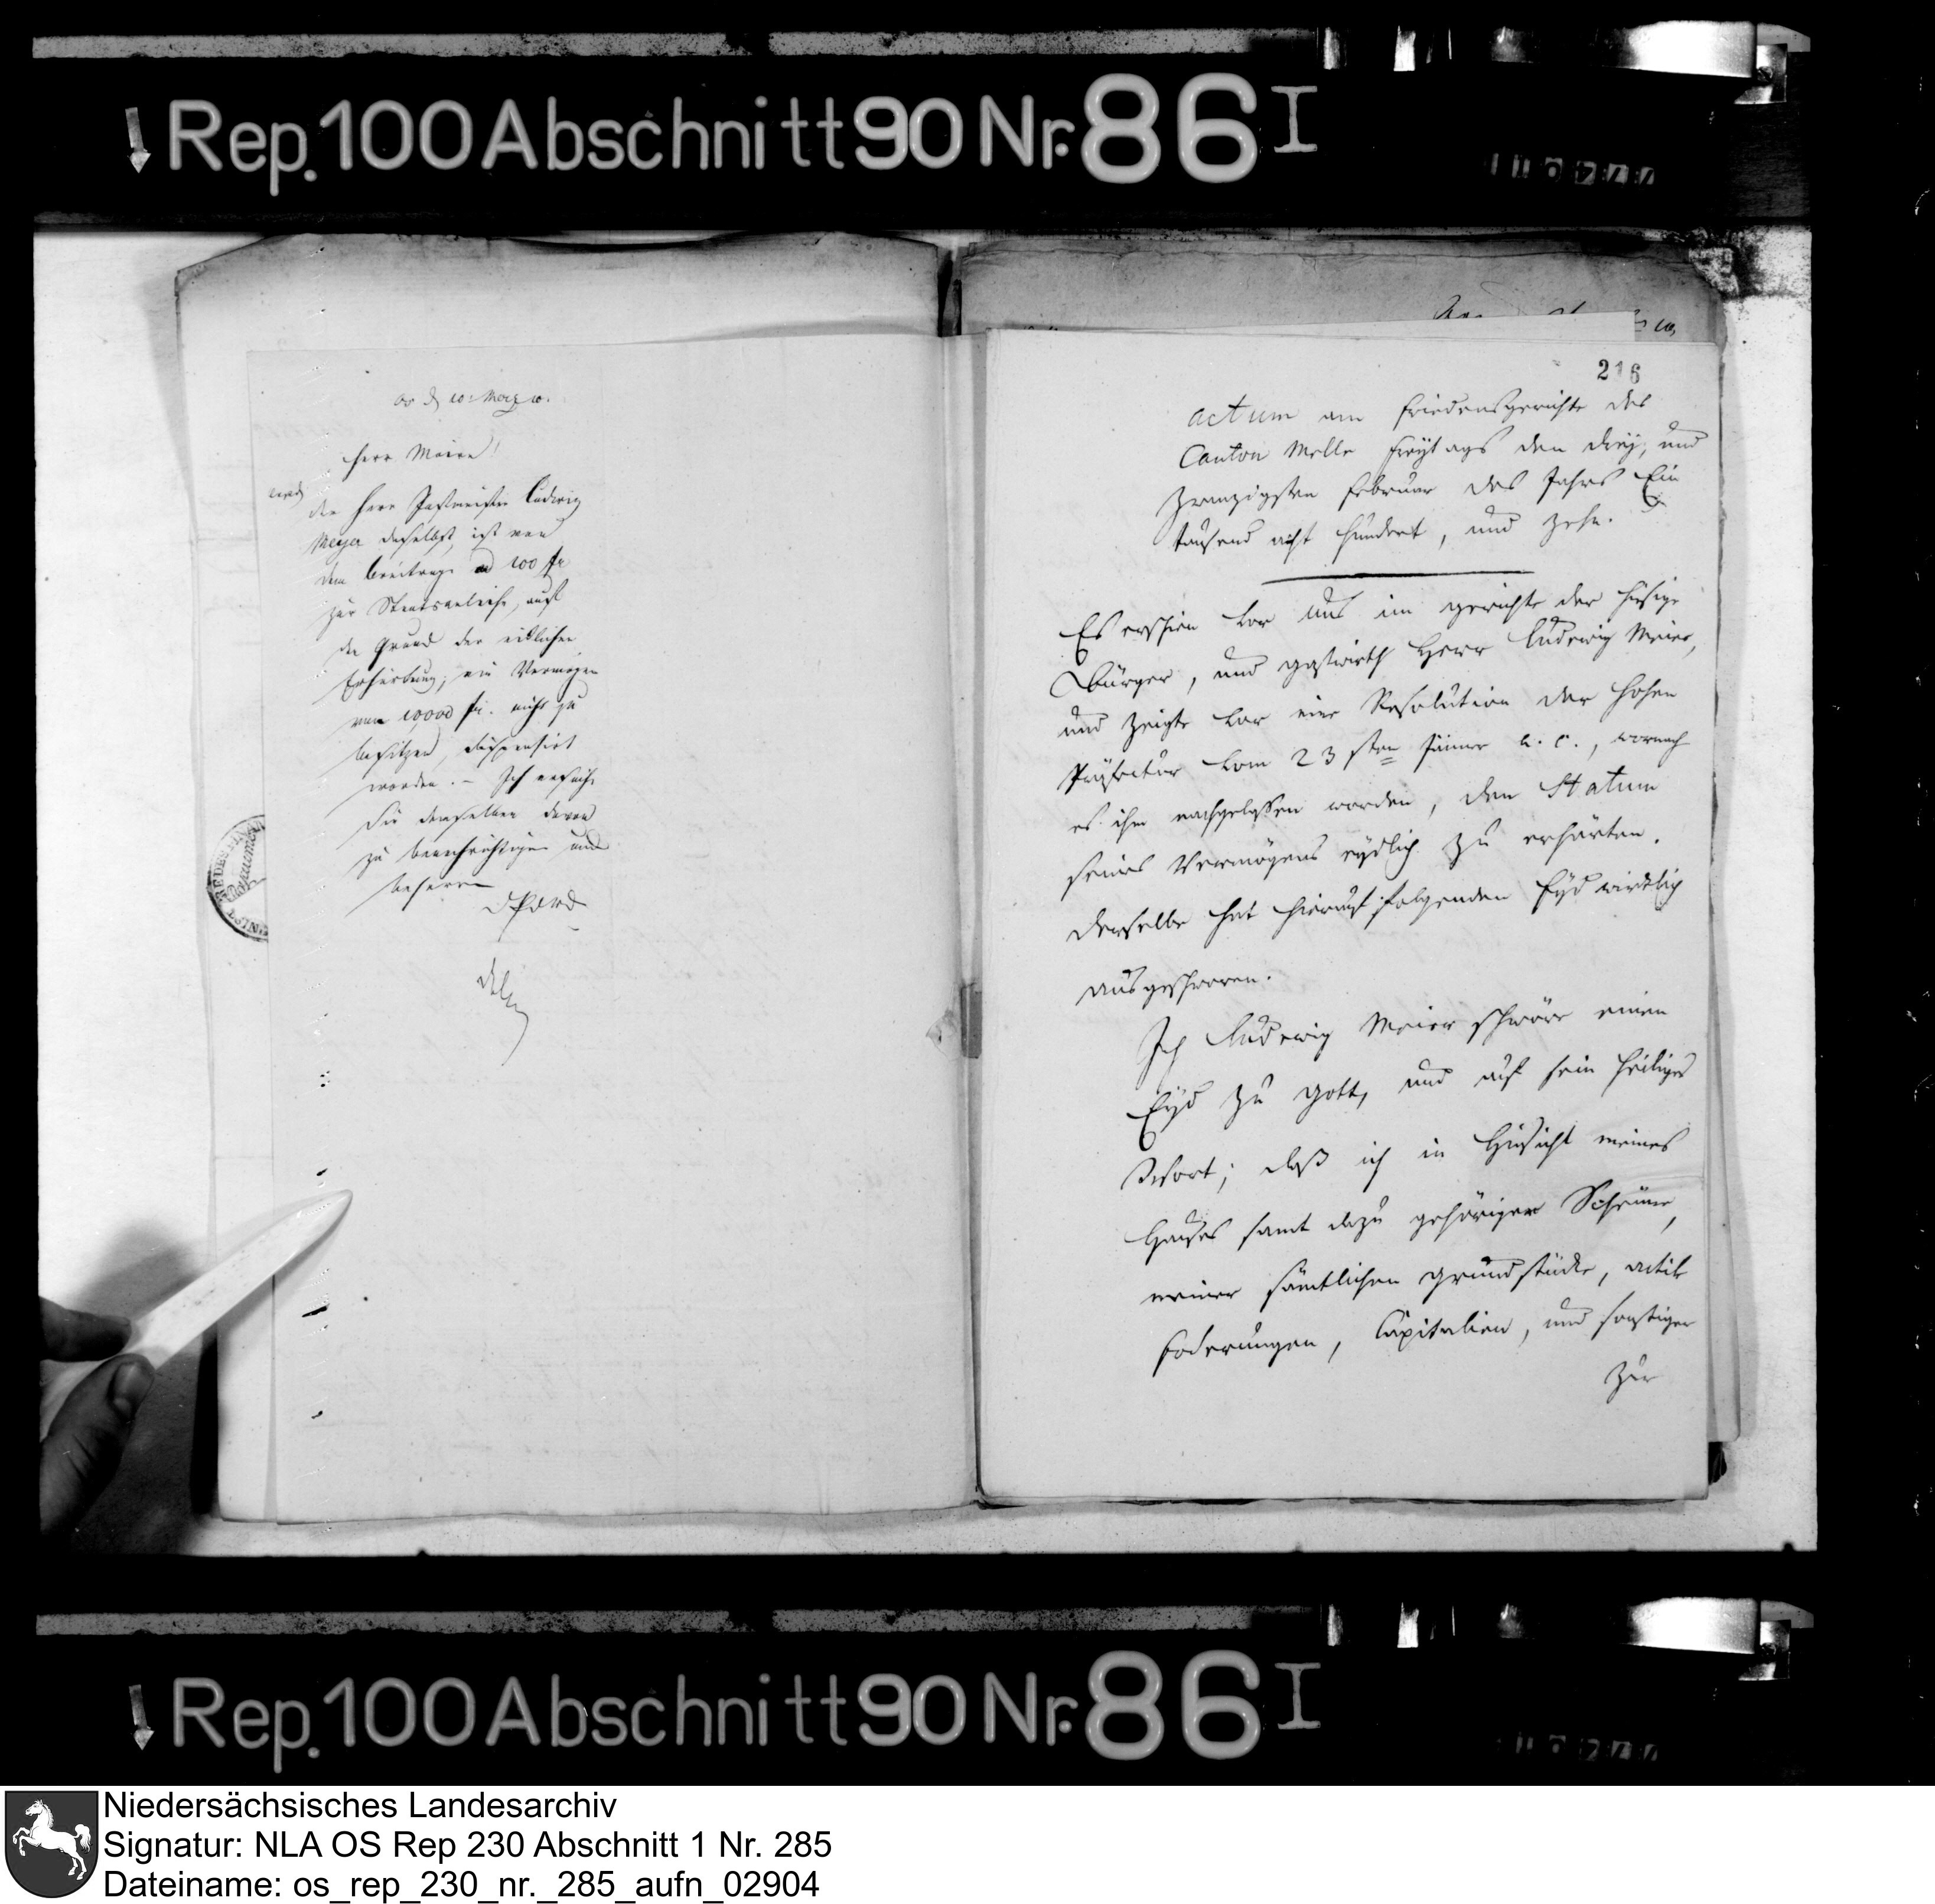 Rep. 100 Abschnitt 90 Nr. 86 I
os d 10 Merz 10.
Herr Maire!
der Herr Postmeister Ludwig
Meyer daselbst, ist von
dem Beitrage ad 100 fr
zur Staatsanleihe, auf
den Grund der eidlichen
Erhärtung, ein Vermögen
von 10,000 fr. nicht zu
besitzen, dispensirt
worden. – Ich ersuche
Sie denselben davon
zu benachrichtigen und
216
actum am Friedensgerichte des
Canton Melle Freytags den drey, und
zwanzigsten Februar des Jahrs Ein
tausend acht hundert, und zehn.
Es erschien vor uns im gerichte der hiesige
Bürger, und gastwirth Herr Ludewig Meier,
und zeigte vor eine Resolution der hohen
Präfectur vom 23sten Jänner a. c., wornach
es ihm nachgelassen worden, den Statum
seines Vermögens eydlich zu erhärten.
Derselbe hat hierauf folgenden Eyd wirklich
ausgeschworen.
Ich Ludewig Meier schwöre einen
Eyd zu Gott, und auf sein heiliges
Wort; daß ich in Hinsicht meines
Hauses samt dazu gehöriger Scheune,
meiner sämtlichen grundstücke, activ
foderungen, Capitalien, und sonstiger
zur
Rep. 100 Abschnitt 90 Nr. 86 I
Niedersächsisches Landesarchiv
Signatur: NLA OS Rep 230 Abschnitt 1 Nr. 285
Dateiname: os_rep_230_nr._285_aufn_02904